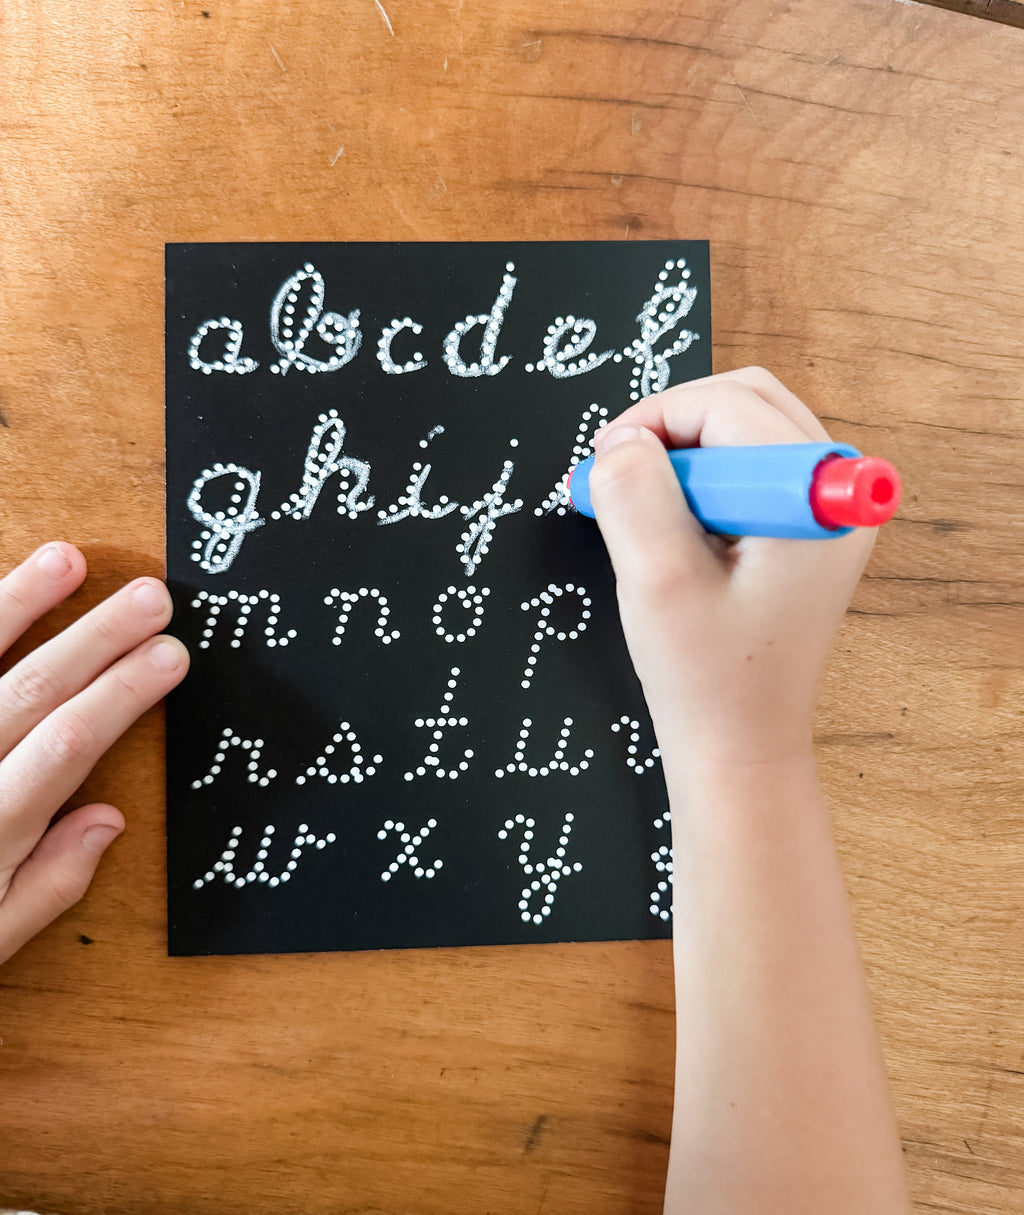 a b c d e f
g h i j k
m n o p
r s t u v
w x y z